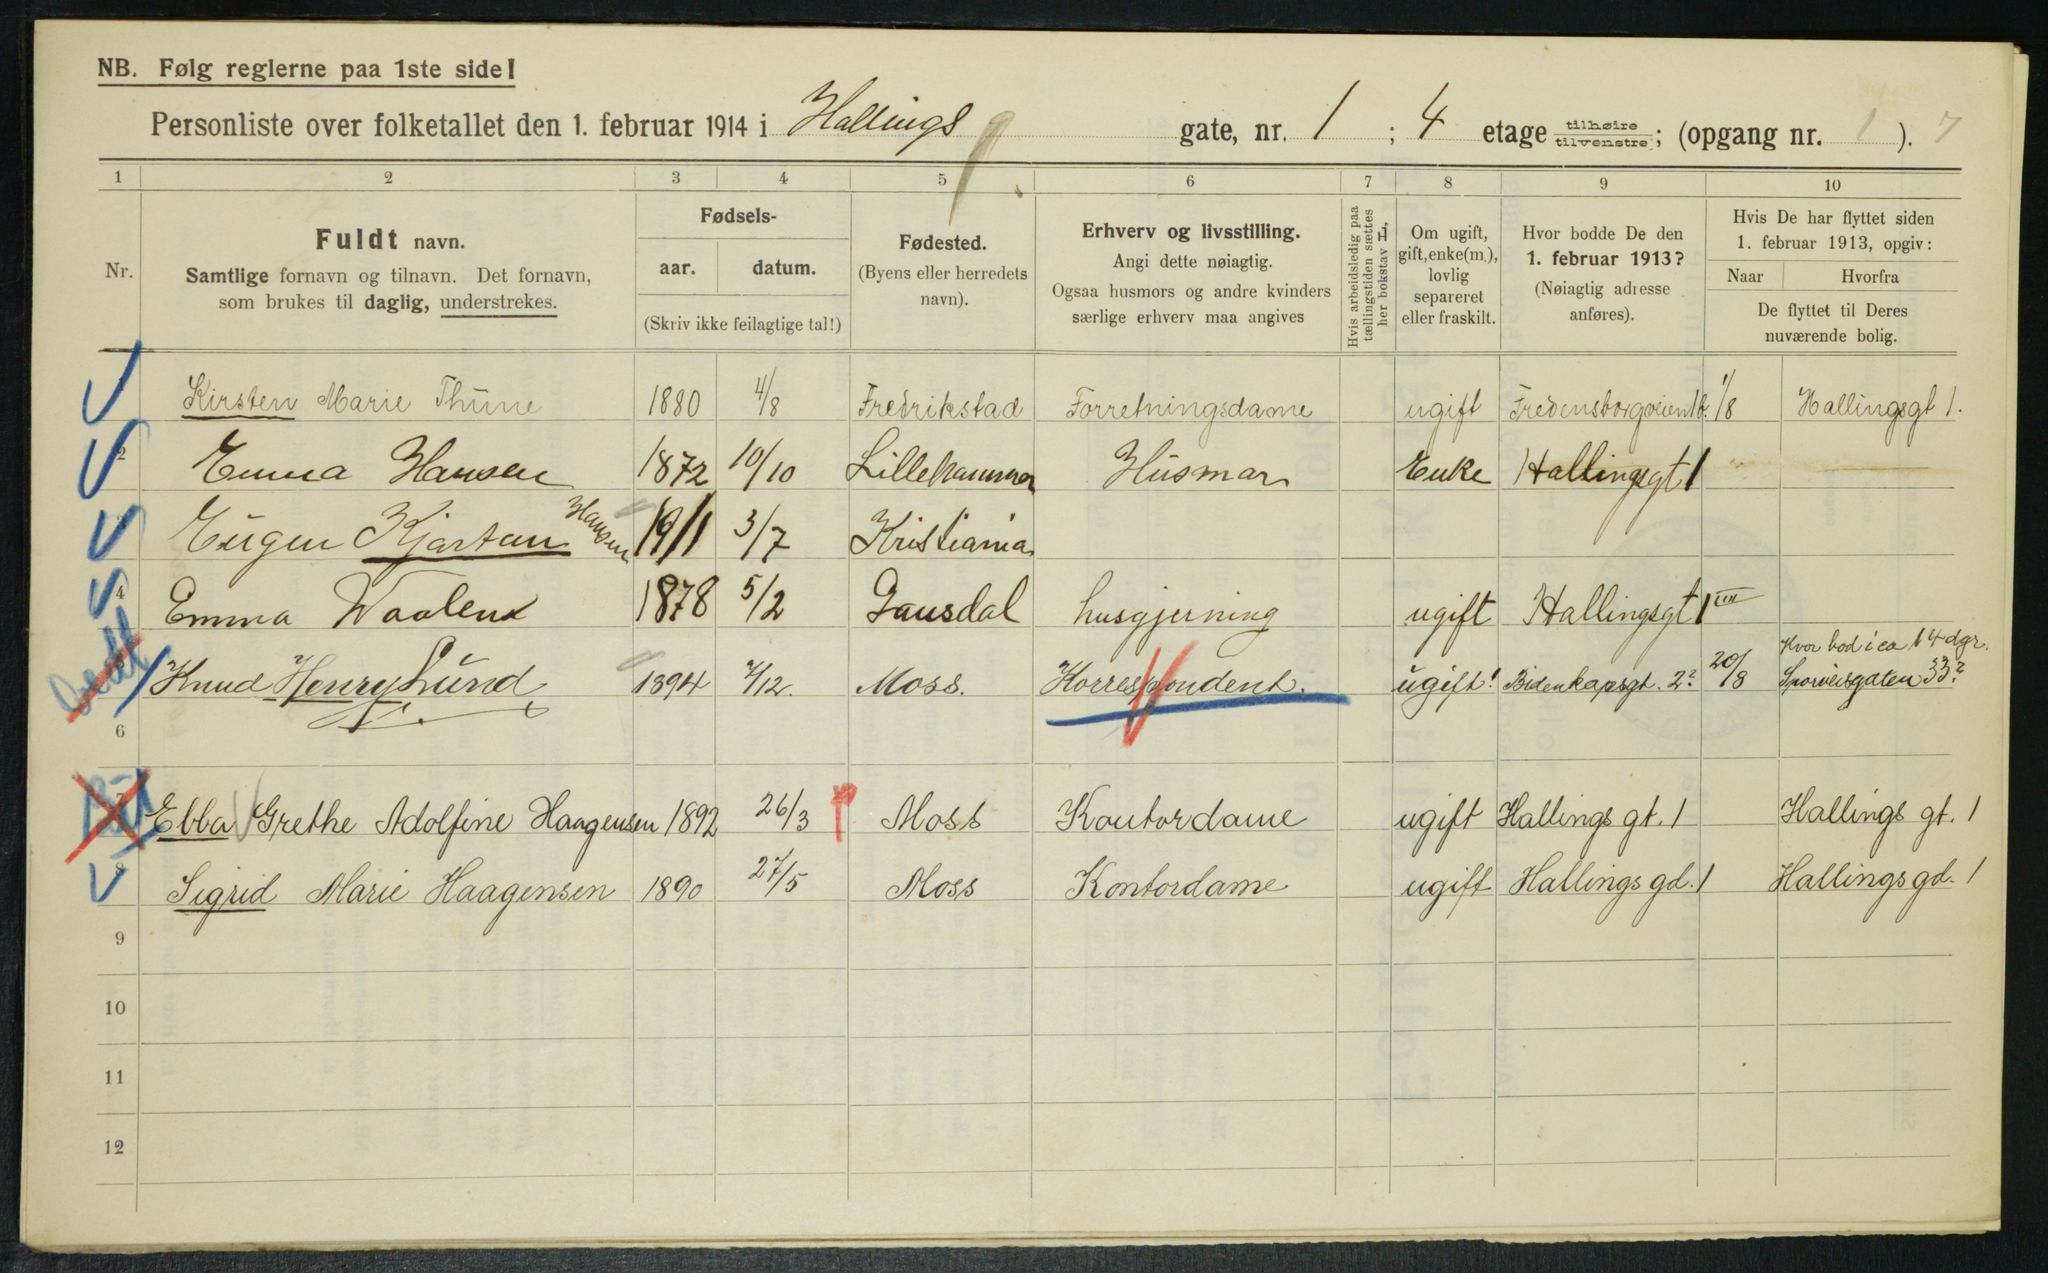 NB. Følg reglerne paa 1ste side!
Personliste over folketallet den 1. februar 1914 i Hallings gate, nr. 1 ; 4 etage tilhøire tilvenstre; (opgang nr. 1 ). 7
1 2 3 4 5 6 7 8 9 10
Nr.
Fuldt navn.
Samtlige fornavn og tilnavn. Det fornavn,
som brukes til daglig, understrekes.
Fødsels-
aar. datum.
(Skriv ikke feilagtige tal!)
Fødested.
(Byens eller herredets
navn).
Erhverv og livsstilling.
Angi dette nøiagtig.
Ogsaa husmors og andre kvinders
særlige erhverv maa angives
Hvis arbeidsledig paa
tællingstiden sættes
her bokstav L.
Om ugift,
gift, enke(m.),
lovlig
separeret
eller fraskilt.
Hvor bodde De den
1. februar 1913?
(Nøiagtig adresse
anføres).
Hvis De har flyttet siden
1. februar 1913, opgiv:
Naar Hvorfra
De flyttet til Deres
nuværende bolig.
Kirsten Marie Thune 1880 4/8 Fredrikstad Forretningsdame ugift Fredensborgveien 1/8 Hallingsgt 1.
2 Emma Hansen 1872 10/10 Lillehammer Husmor Enke Hallingsgt 1
3 Eugen Kjartan Hansen 1911 3/7 Kristiania
4 Emma Waalen 1878 5/2 Gausdal husgjerning ugift Hallingsgt 1 III
Knud Henry Lund 1894 7/12. Moss. Korrespondent. ugift! Bidenkapsgt. 2? 20/8 Hvor bod i ca 14 dgr.
Sporveisgaten 33?
6
7 Ebba Grethe Adolfine Haagensen 1892 26/3 Moss Kontordame ugift Hallings gt. 1 Hallings gt. 1
8 Sigrid Marie Haagensen 1890 27/5 Moss Kontordame ugift Hallings gd. 1 Hallings gd. 1
9
10
11
12